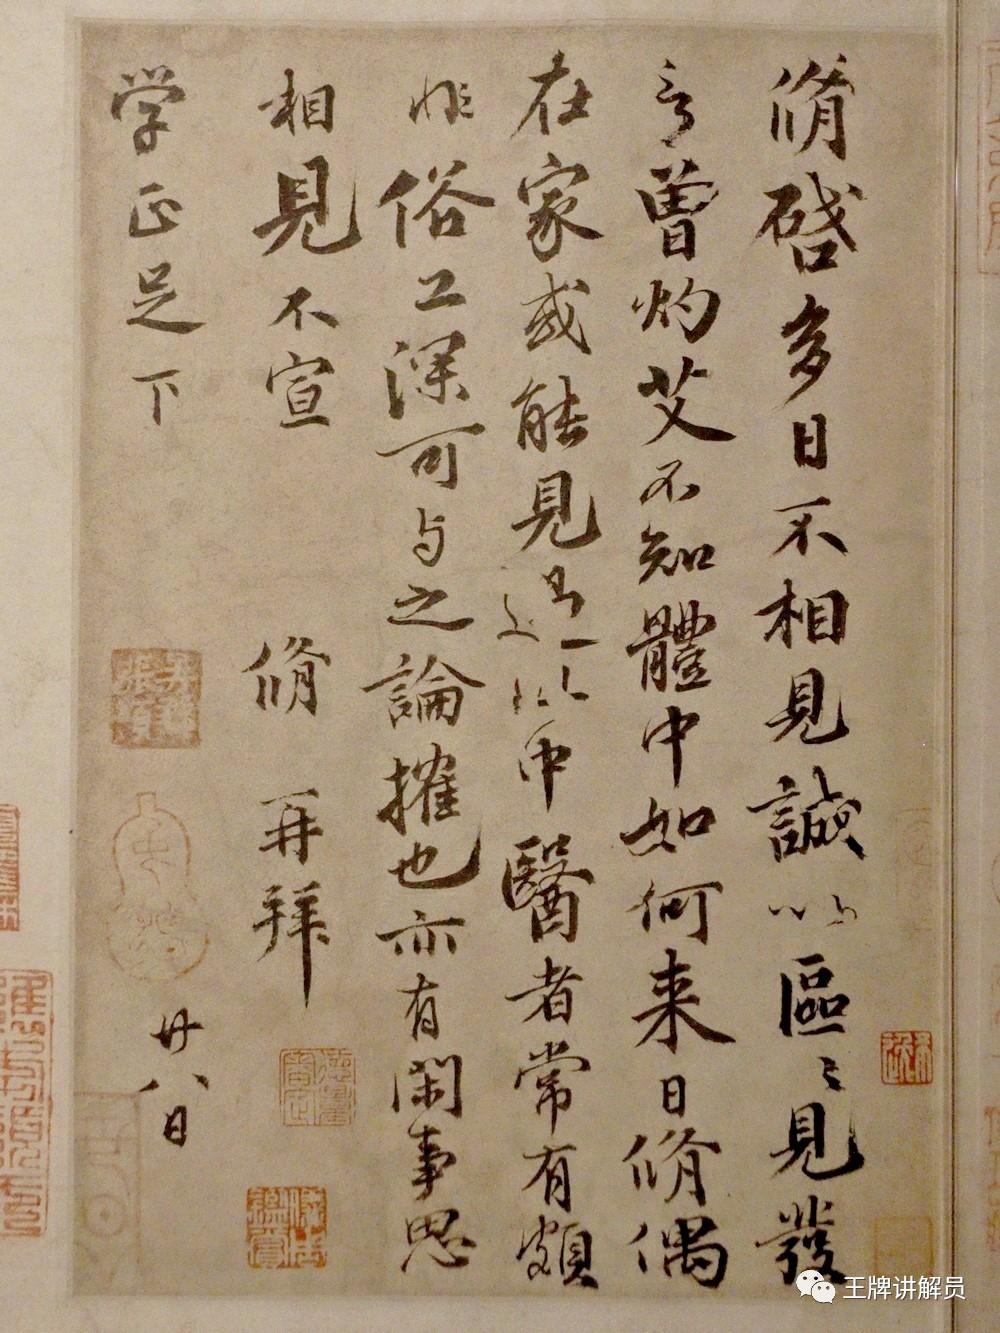 脩啓多日不相見誠以區〻見發
言曾灼艾不知體中如何来日脩偶
在家或能見過以中醫者常有頗
非俗工深可与之論搉也亦有閑事思
相見不宣
脩再拜
廿八日
学正足下
王牌讲解员